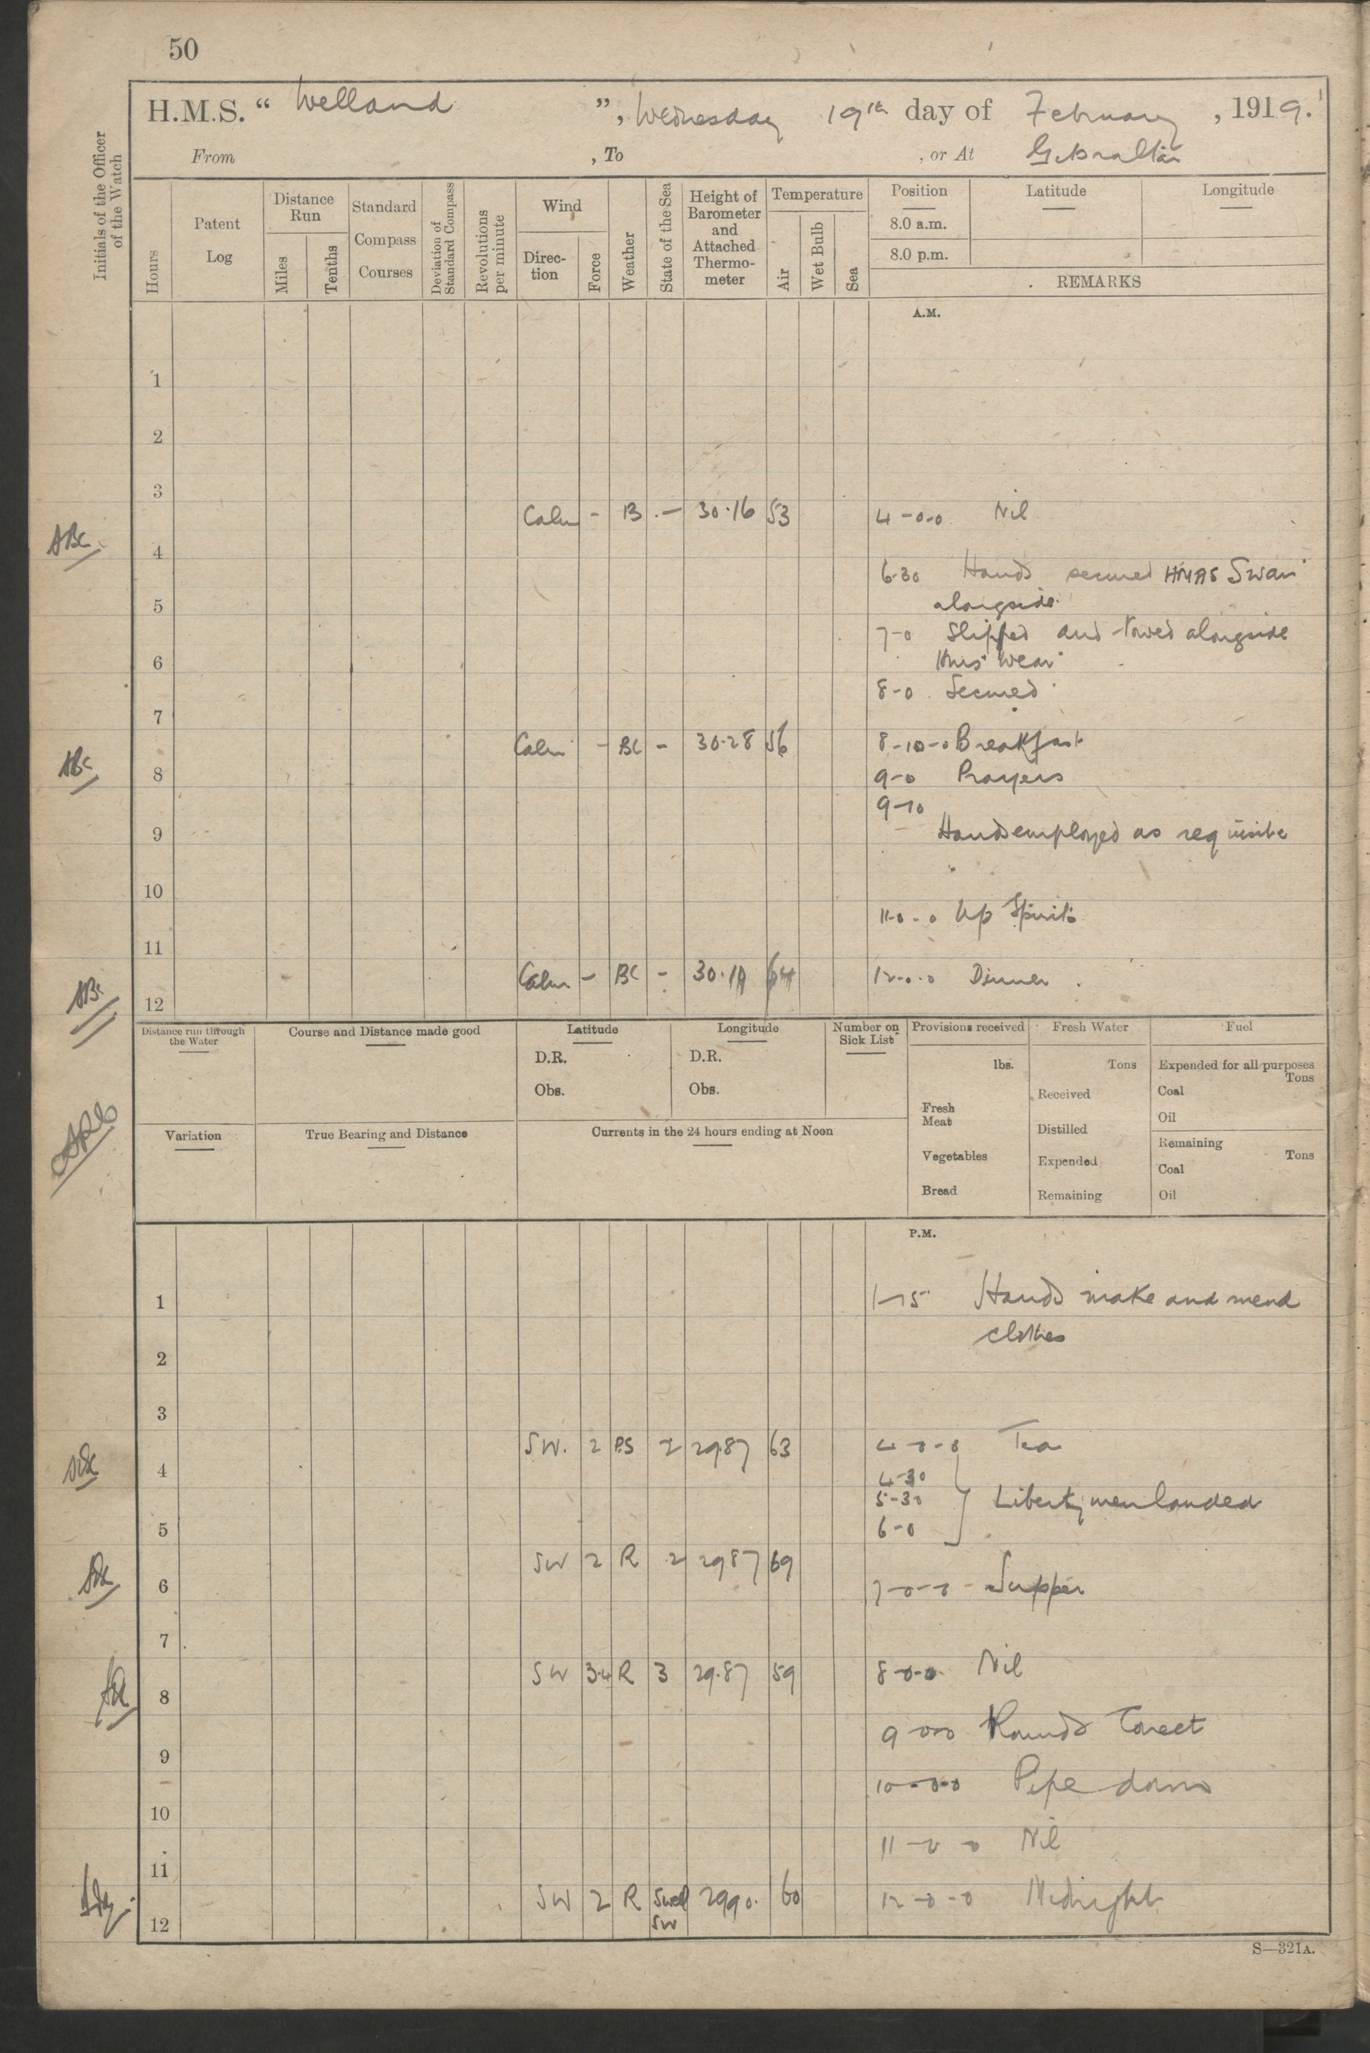 50
H.M.S. " Welland ", Wednesday 19th day of February, 1919.
From , To , or At Gibraltar
Initials of the Officer of the Watch
Hours
Patent Log
Distance Run
Miles
Tenths
Standard Compass Courses
Deviation of Standard Compass
Revolutions per minute
Wind
Direction
Force
Weather
State of the Sea
Height of Barometer and Attached Thermometer
Temperature
Air
Wet Bulb
Sea
Position Latitude Longitude
8.0 a.m.
8.0 p.m.
REMARKS
A.M.
1
2
3
Calm - B - 30.16 53 4-0-0 Nil
ABC
4
6-30 Hands secured HMAS Swan
5
alongside.
7-0 Slipped and towed alongside
6
Wear
8-0 Secured
7
Calm - BC - 30.28 56 8-10-0 Breakfast
ABC
8
9-0 Prayers
9-10
9
Hands employed as requisite
10
11-0-0 Up Spirits
11
Calm - BC - 30.19 64 12-0-0 Dinner
ABC
12
Distance run through the Water
Course and Distance made good
Latitude
D.R.
Obs.
Longitude
D.R.
Obs.
Number on Sick List
Provisions received
lbs.
Fresh Meat
Vegetables
Bread
Fresh Water
Tons
Received
Distilled
Expended
Remaining
Fuel
Expended for all purposes
Tons
Coal
Oil
Remaining
Tons
Coal
Oil
Variation
True Bearing and Distance
Currents in the 24 hours ending at Noon
P.M.
1
1-15 Hands make and mend
clothes
2
3
SW. 2 PS 2 2987 63 4-0-0 Tea
4
4-30
5-30 } Liberty men landed
6-0
5
SW 2 R 2 2987 69
6
7-0-0 - Supper
7
SW 3-4 R 3 29.87 59 8-0-0 Nil
8
9-0-0 Rounds Correct
9
10-0-0 Pipe down
10
11-0-0 Nil
11
SW 2 R Swell SW 2990. 60 12-0-0 Midnight
12
S—321A.